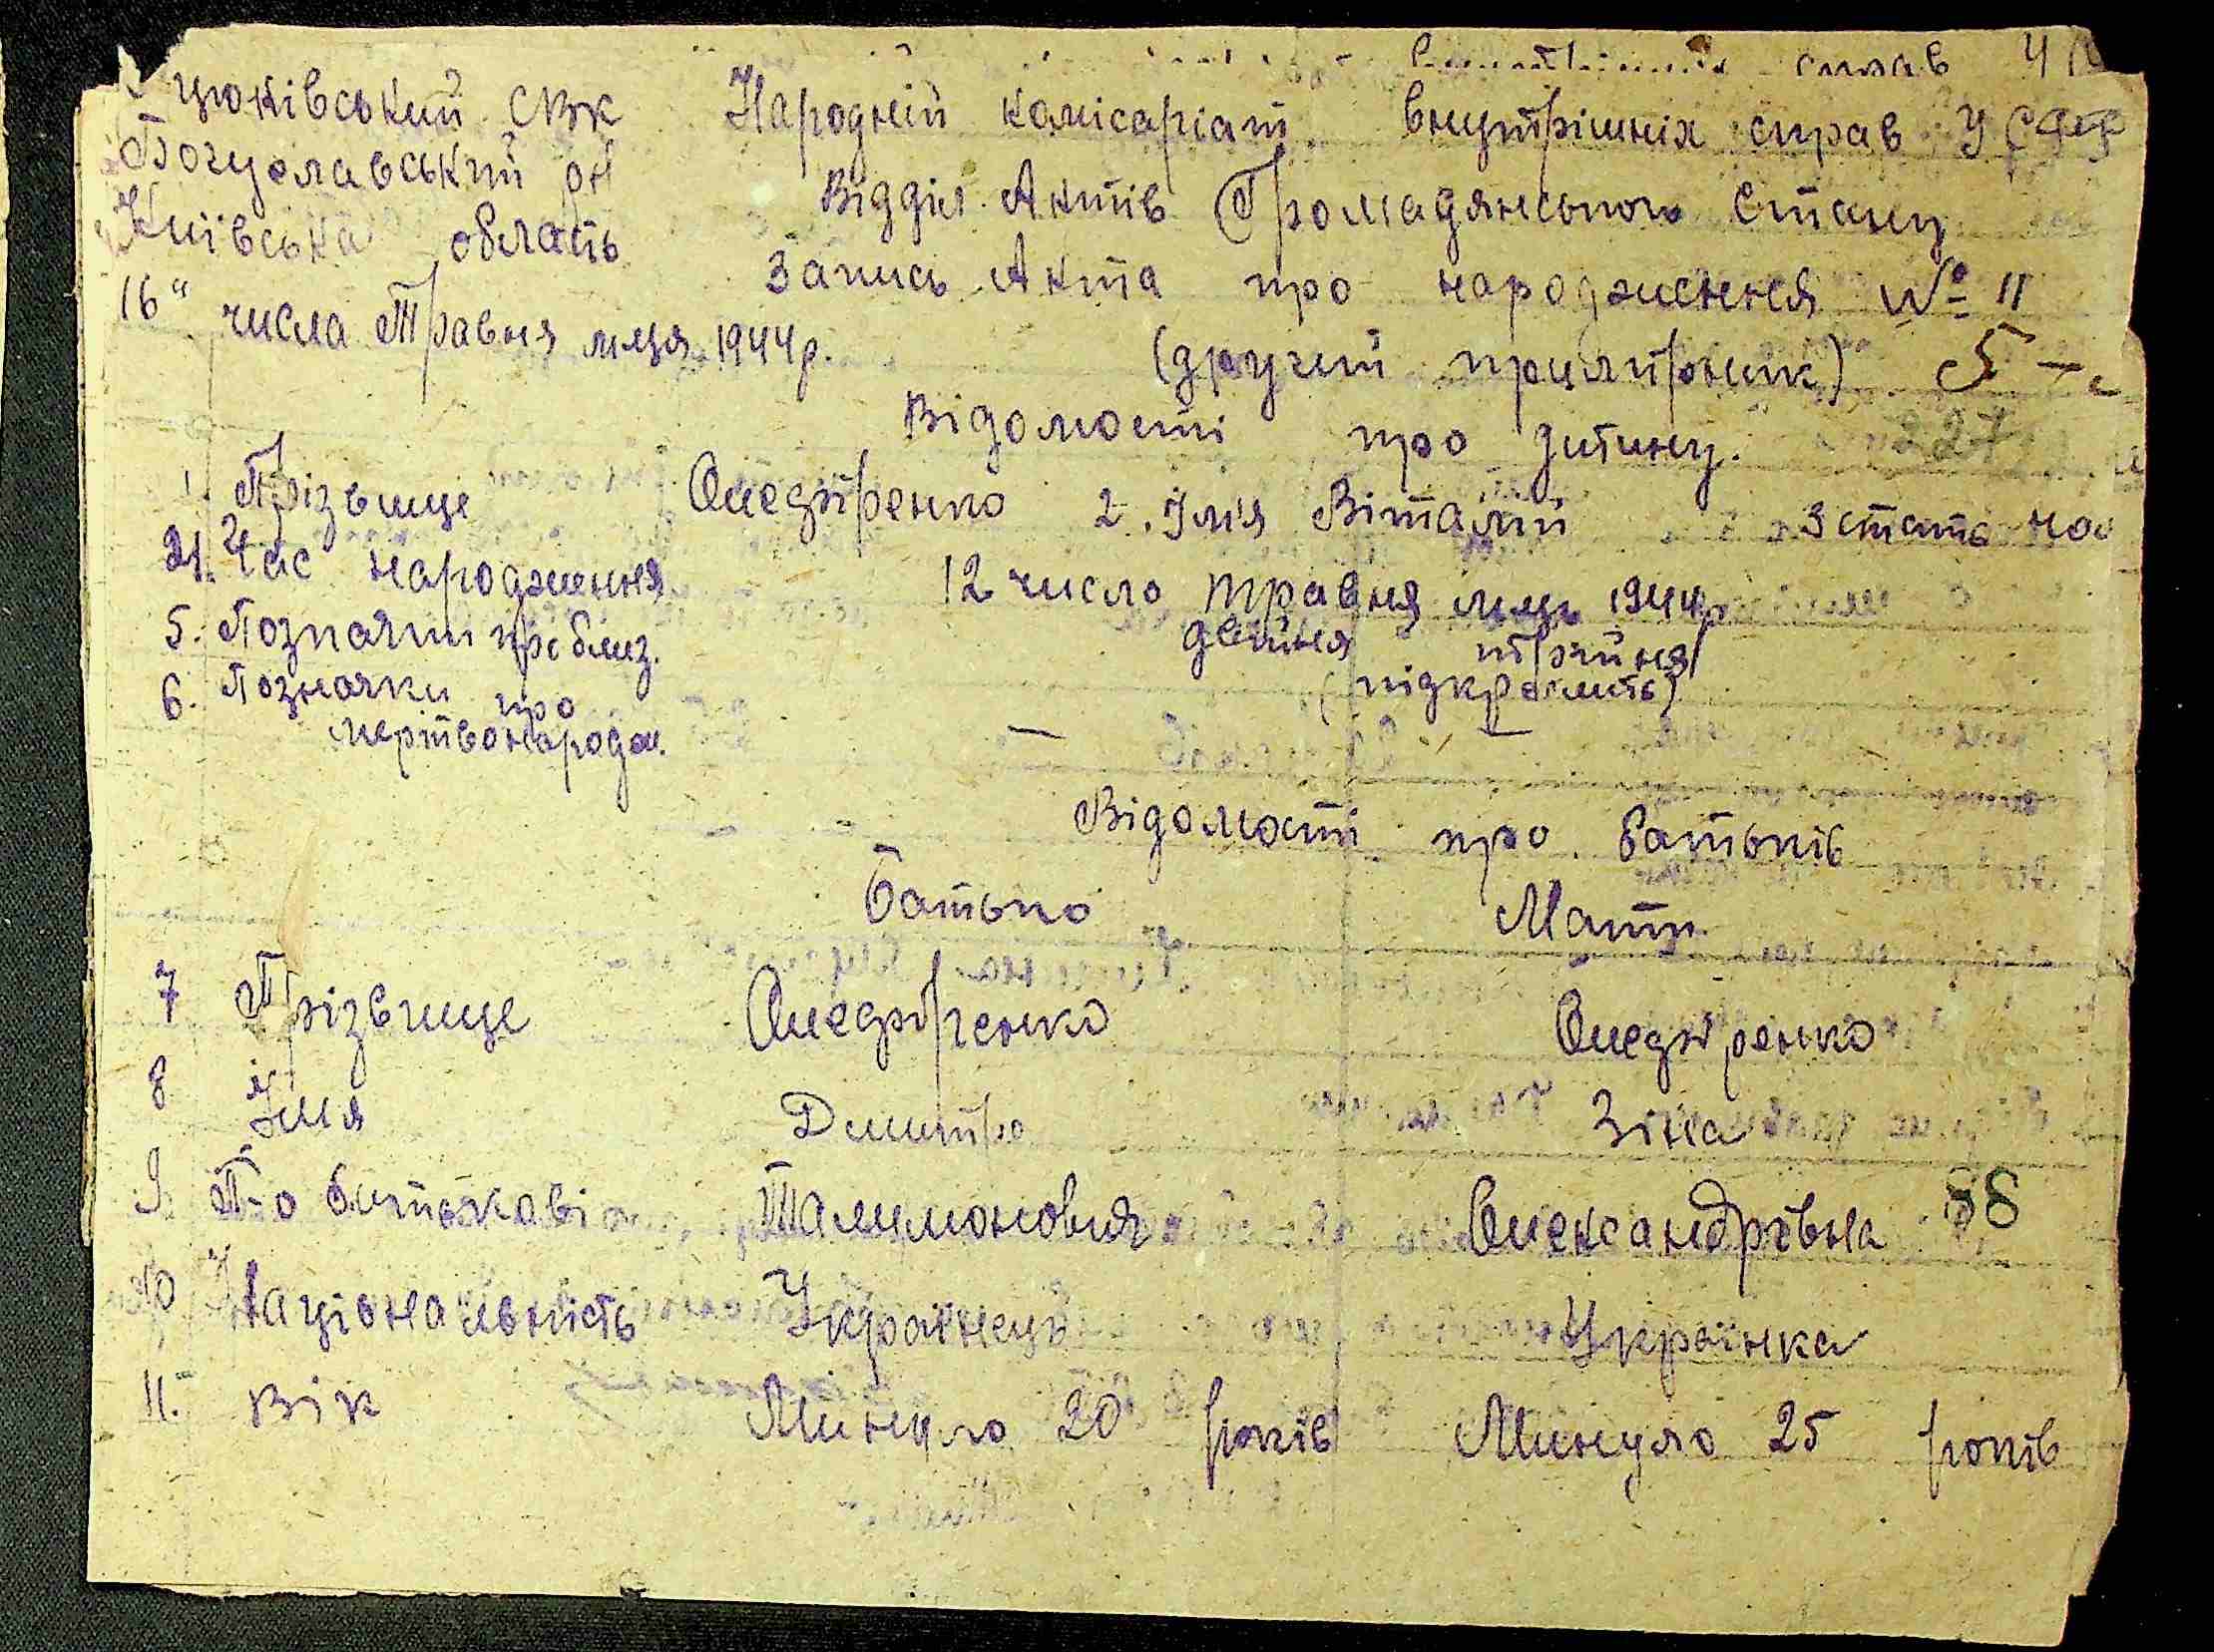 справ
Цюківський СВК Народній комісаріат внутрішніх справ УССР
Богуславський рн Відділ Актів Громадянського Стану
Київська область Запись Акта про народження № 11
16" числа Травня м-ця 1944 р. (другий примірник) 5
227
Відомості про дитину.
1. Прізвище 2. Імя Віталій 3 стать
4. Час народження 12 число травня м-ць 1944 р
5. Позначки про близ. двійня трійня
(підкреслить)
6. Позначки про
мертвонародж. — —
Відомості про батьків
Батько Мати
7 Прізвище
8 Імя Дмитро Зіна
9. По батькові Талимонович Олександрівна 88
10 Національність Українець Українка
11. вік Минуло 20 років Минуло 25 років